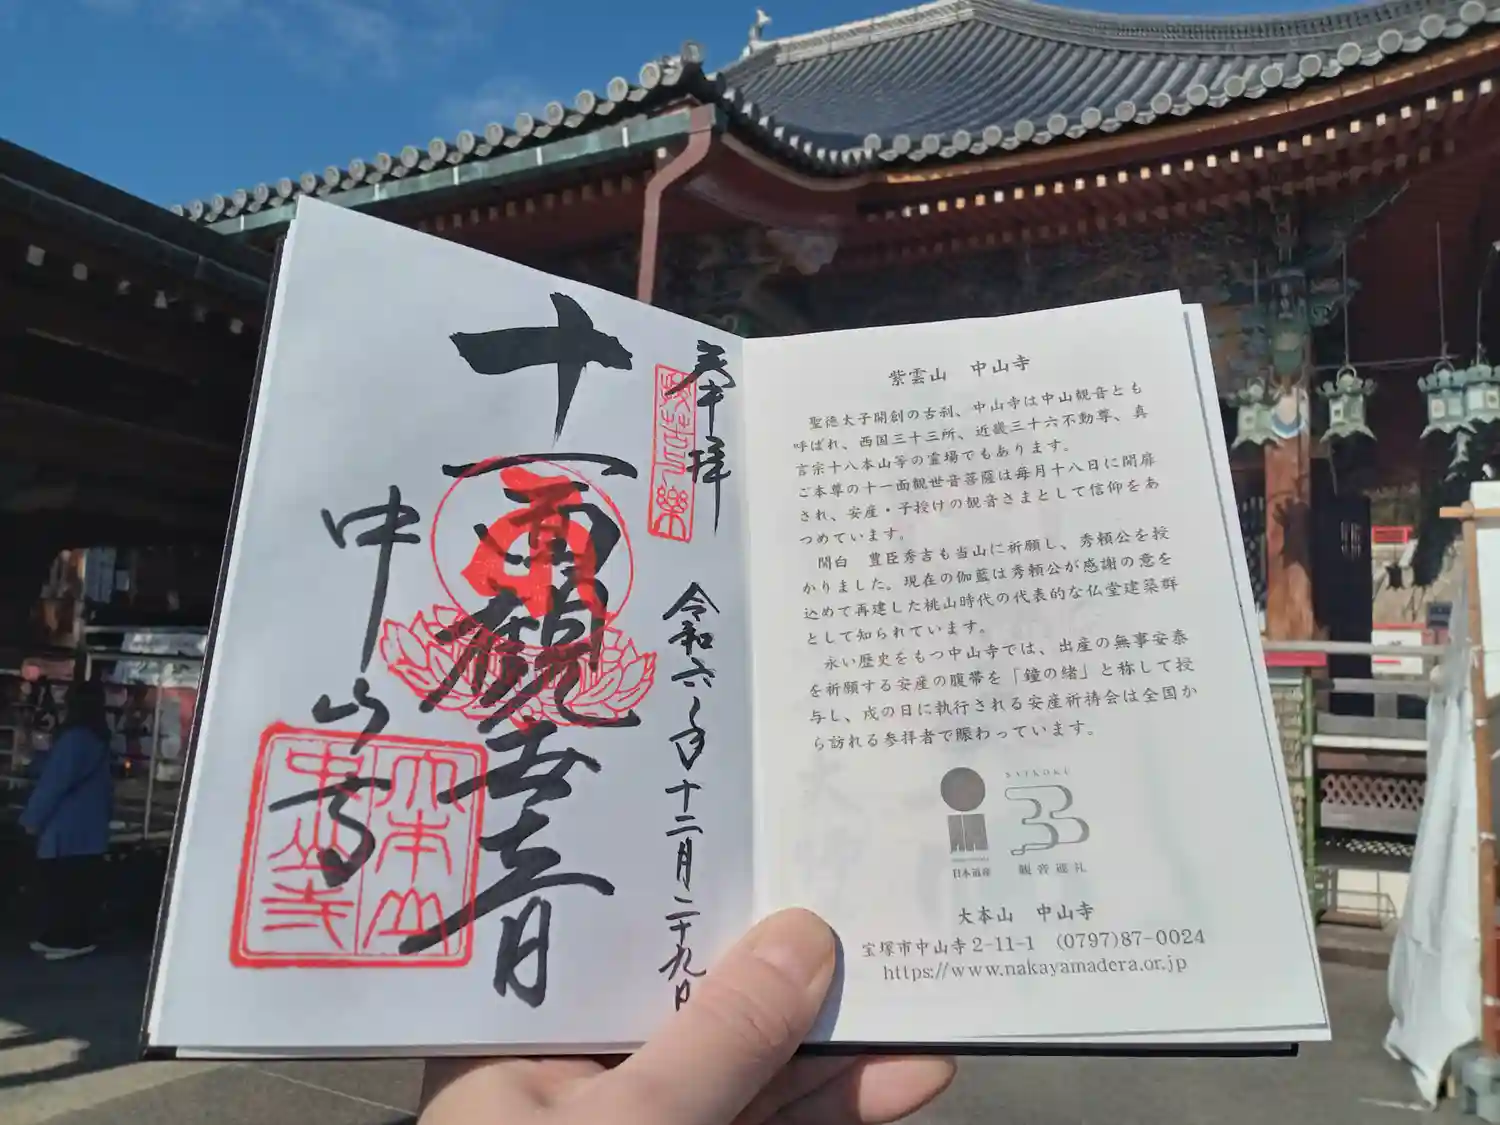 奉拝
令和六年十二月二十九日
十一面観世音
中山寺
大本山
中山寺
紫雲山 中山寺
聖徳太子開創の古刹、中山寺は中山観音とも
呼ばれ、西国三十三所、近畿三十六不動尊、真
言宗十八本山等の霊場でもあります。
ご本尊の十一面観世音菩薩は毎月十八日に開扉
され、安産・子授けの観音さまとして信仰をあ
つめています。
関白 豊臣秀吉も当山に祈願し、秀頼公を授
かりました。現在の伽藍は秀頼公が感謝の意を
込めて再建した桃山時代の代表的な仏堂建築群
として知られています。
永い歴史をもつ中山寺では、出産の無事安泰
を祈願する安産の腹帯を「鐘の緒」と称して授
与し、戌の日に執行される安産祈祷会は全国か
ら訪れる参拝者で賑わっています。
日本遺産
SAIKOKU
33
観音巡礼
大本山 中山寺
宝塚市中山寺2-11-1 (0797)87-0024
https://www.nakayamadera.or.jp